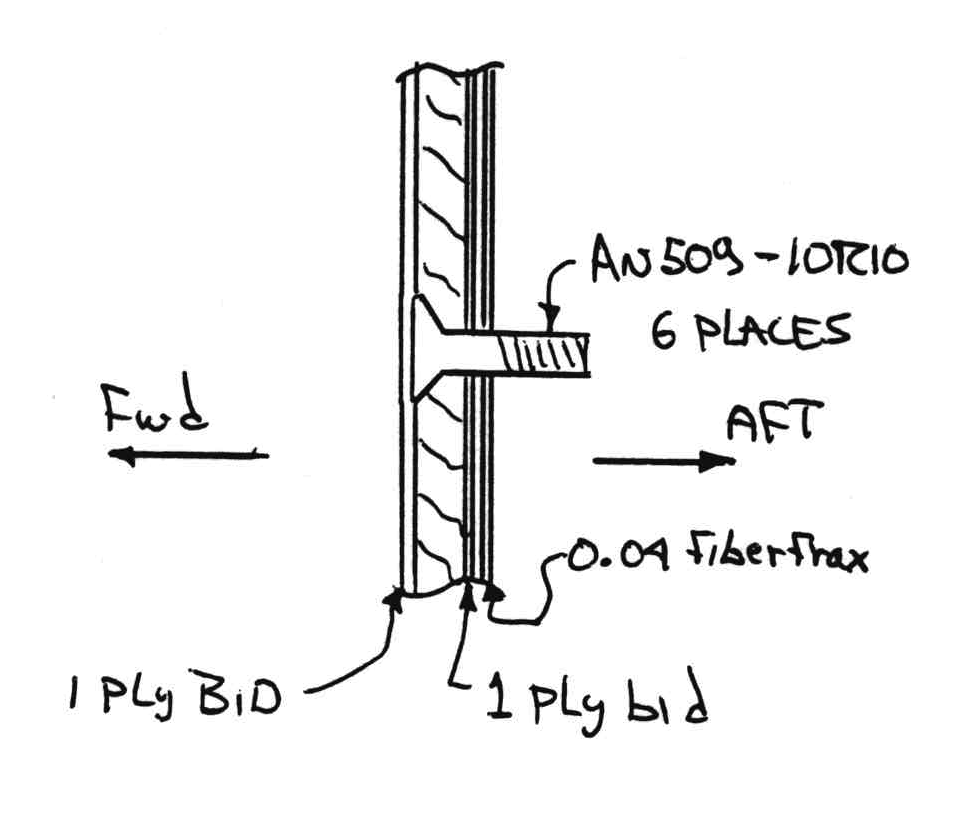 AN509-10R10
6 PLACES
Fwd
AFT
0.04 fiberfrax
1 PLy BiD
1 PLy bid